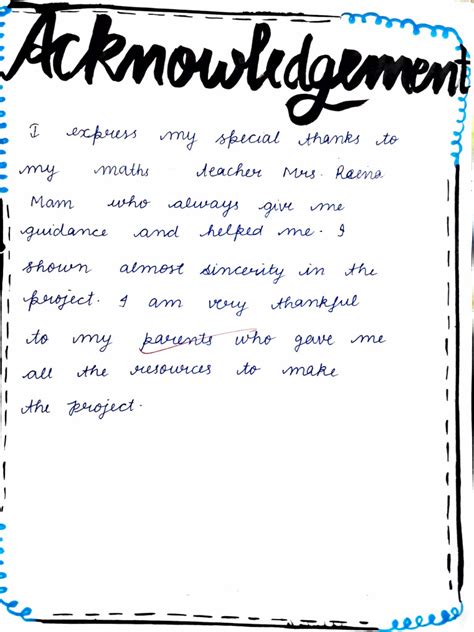 Acknowledgement
I express my special thanks to
my maths teacher Mrs. Raena
Mam who always give me
guidance and helped me. I
shown almost sincerity in the
project. I am very thankful
to my parents who gave me
all the resources to make
the project.